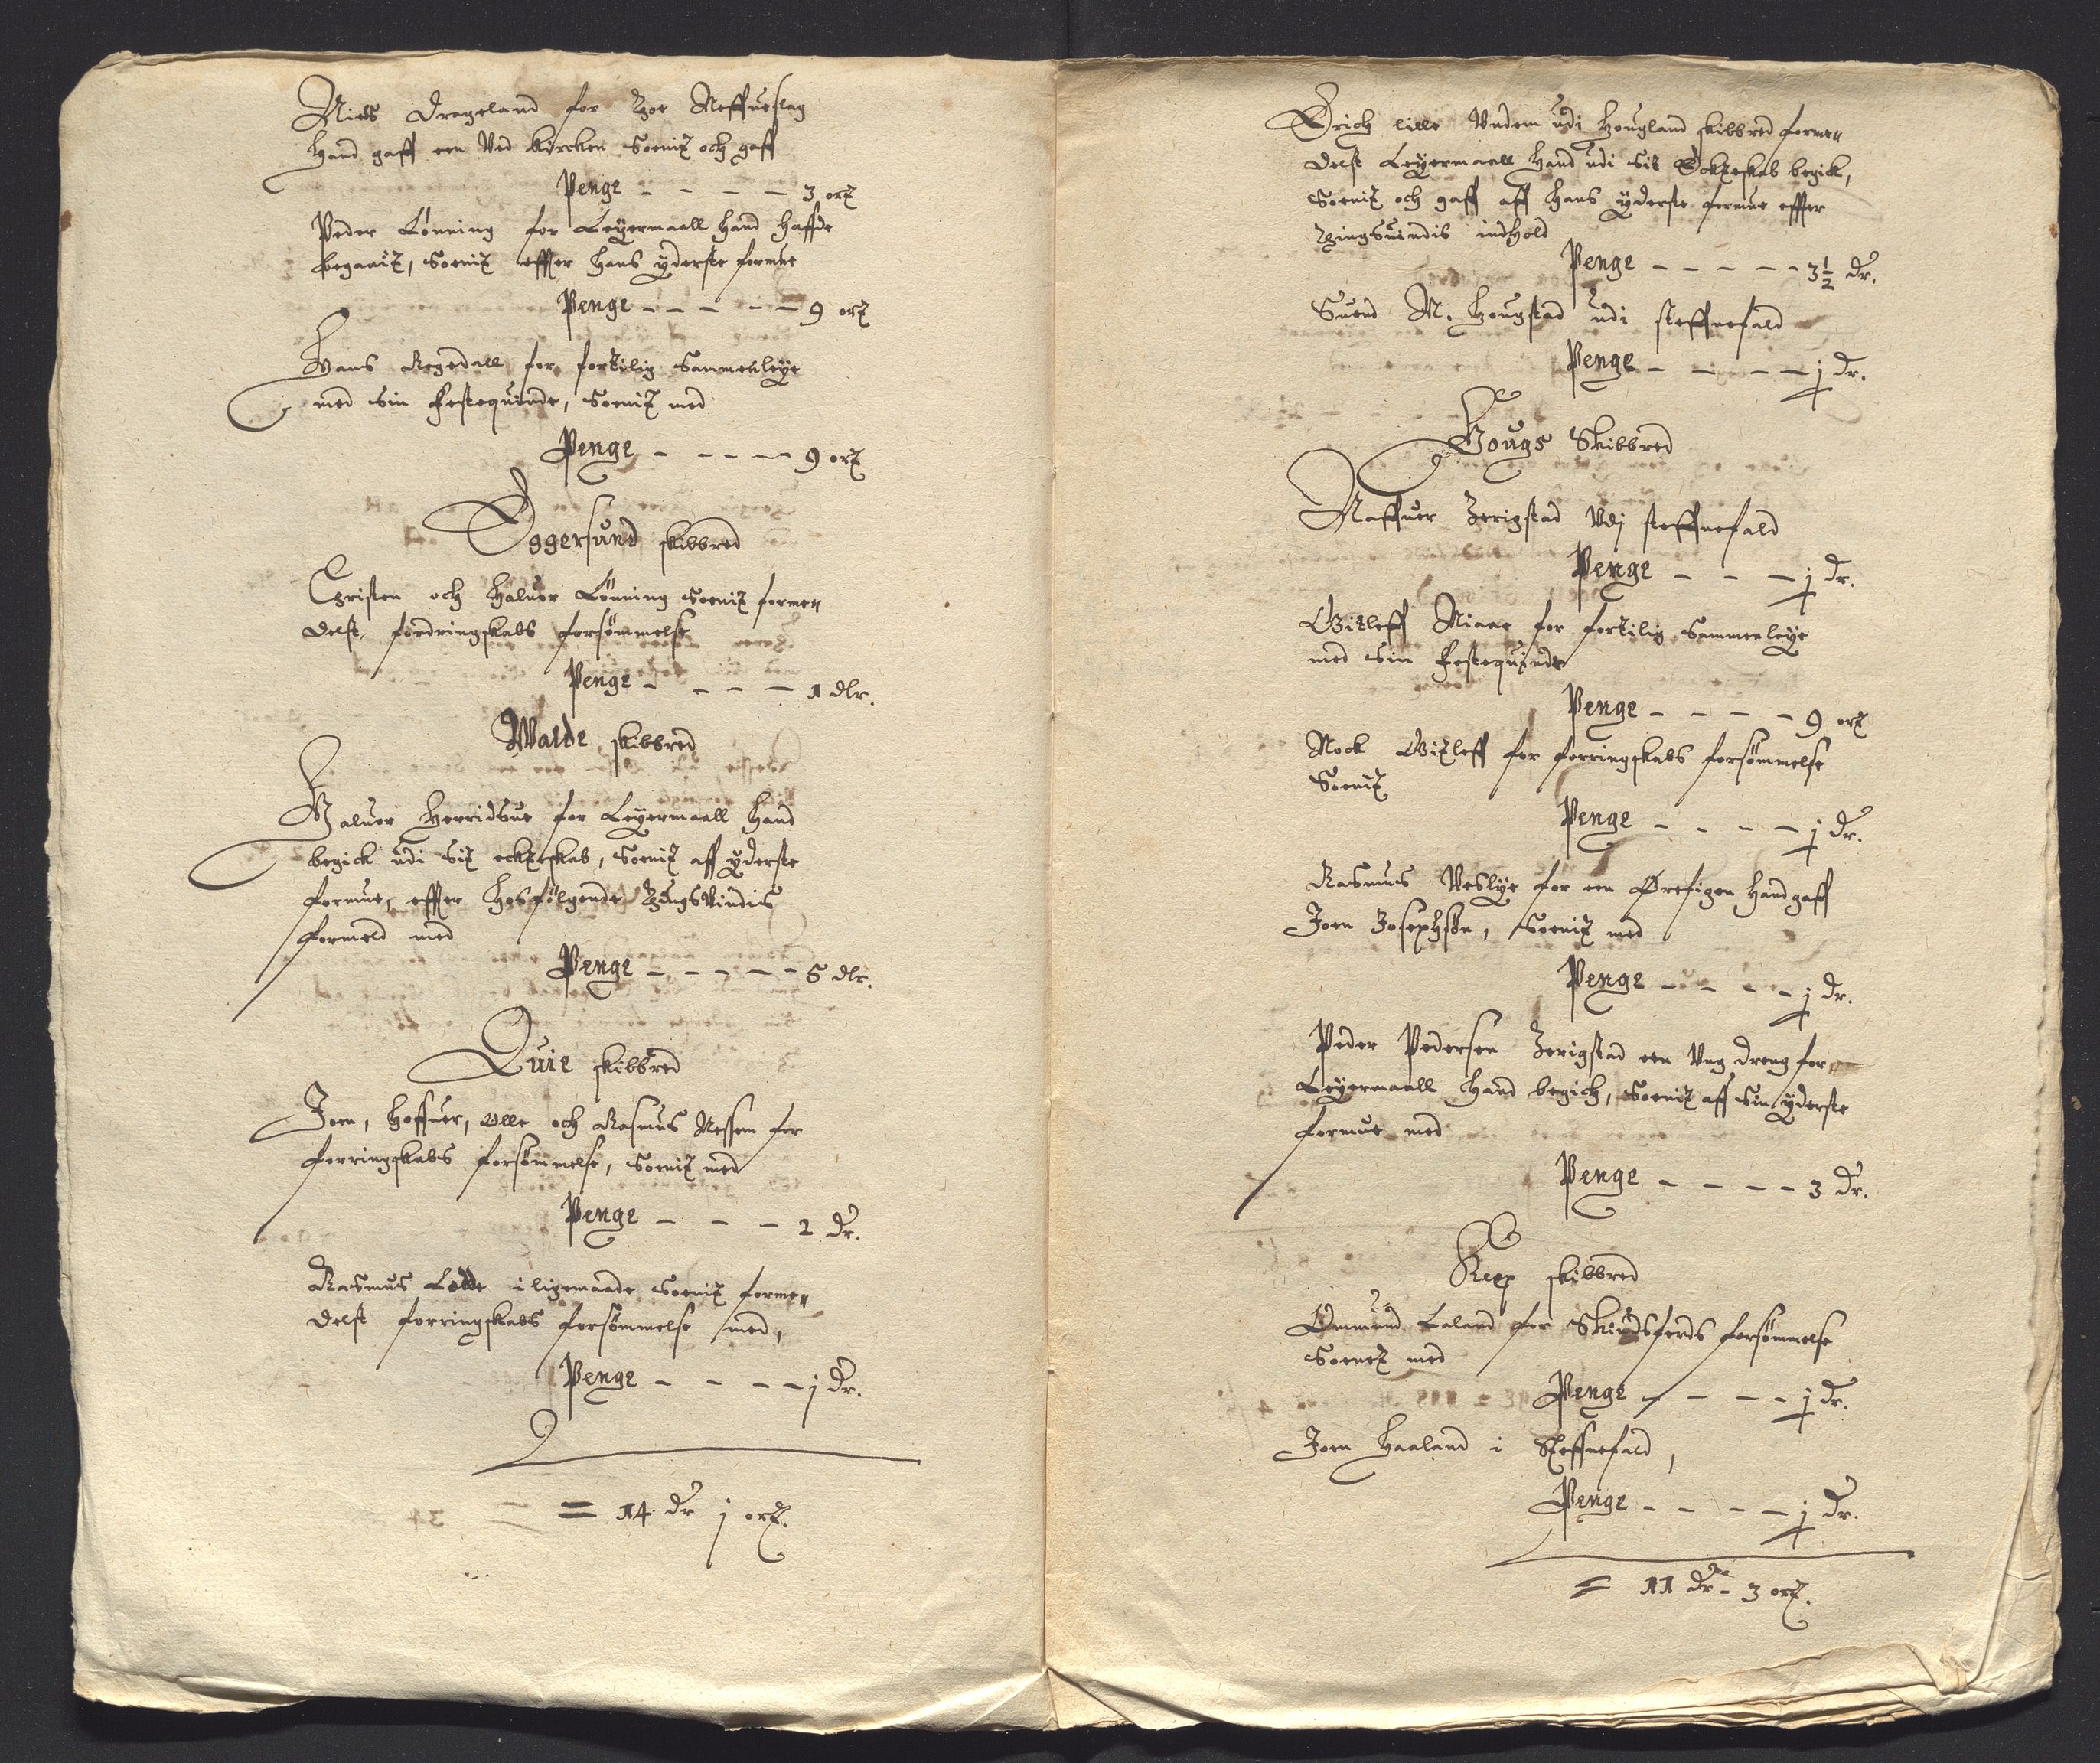 Niels Drageland for Thoe Neffueslag
hand gaff een Ved kircken Soenit och gaff
Penge - - - - 3 ort
Peder Lönning for Leyermaall hand haffde
begaait, Soenit effter hans yderste formue
Penge - - - - - 9 ort
Hans Regedall for fortilig Sammenleye
med sin festequinde, Soenit med
Penge - - - - 9 ort
Eggersund skibbred
Christen och Haluor Lönning Soenit forme„
delst, fordringskabs forsömmelse
Penge - - - - 1 dlr.
Walde skibbred
Haluor Herridsue for Leyermaall hand
begick udi sit ecteskab, Soenit aff yderste
formue, effter hosfölgende Tingsvindis
formeld med
Penge - - - - - 5 dlr.
Quie skibbred
Joen, Hoffuer, Olle och Rasmus Nessem for
forringskabs forsömmelse, Soenit med
Penge - - - 2 dr.
Rasmus Lode iligemaade Soenit forme„
delst forringskabs forsömmelse med,
Penge - - - - j dr.
= 14 dr j ort.
Erich lille Undem udi Hougland skibbred forme„
delst Leyermaall hand udi sit Ecteskab begick,
Soenit och gaff aff hans yderste formue effter
Tingsuindis indhold
Penge - - - - - 3½ dr.
Suend N. Hougstad udi steffnefald
Penge - - - - j dr.
Hougs Skibbred
Naffuer Zerigstad Udj steffnefald
Penge - - - j dr.
Gitleff Niaae for fortilig Sammenleye
med sin festequinde
Penge - - - - 9 ort
Nock Gitleff for forringskabs forsömmelse
Soenit
Penge - - - - j dr.
Rasmus Veslye for een Örefigen hand gaff
Joen Josephsön, Soenit med
Penge - - - - j dr.
Peder Pedersen Zerigstad een Ung dreng for„
Leyermaall hand begich, Soenit aff sin yderste
formue med
Penge - - - - 3 dr.
Kiep skibbred
Ommund Laland for Skiudsferds forsömmelse
Soenet med
Penge - - - - j dr.
Joen Haaland i Steffnefald,
Penge - - - - j dr.
= 11 dr - 3 ort.